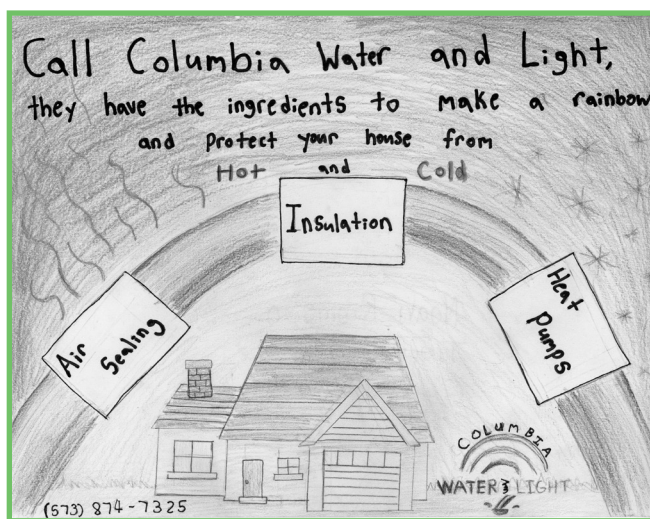 Call Columbia Water and Light,
they have the ingredients to make a rainbow
and Protect your house from
Hot and Cold
Insulation
Air
Sealing
Heat
Pumps
COLUMBIA
WATER & LIGHT
(573) 874-7325